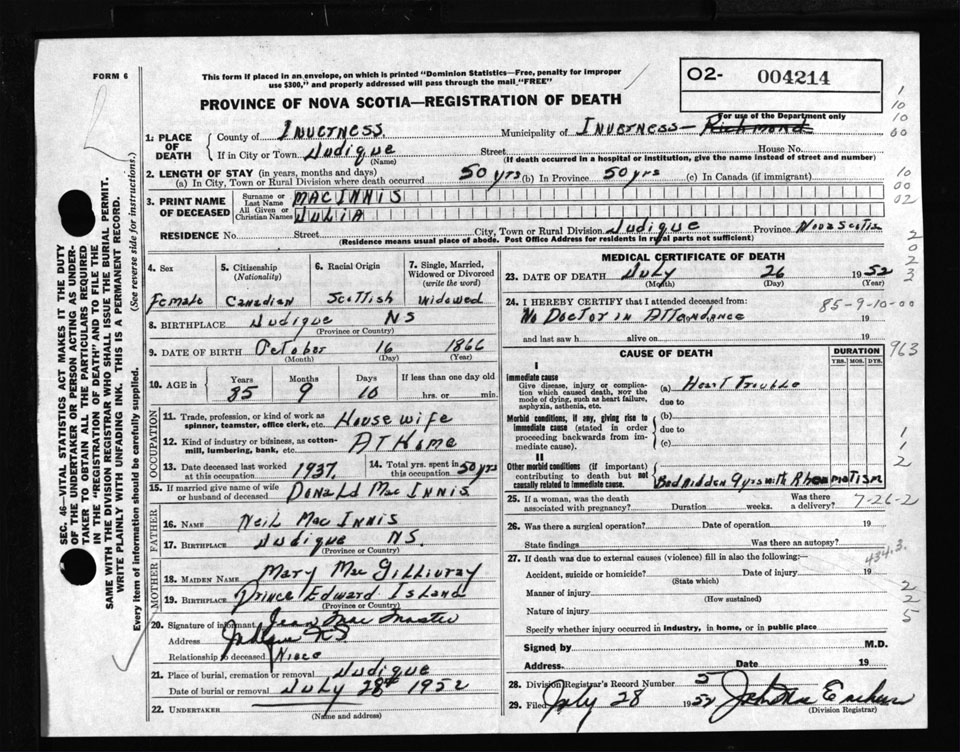 FORM 6
This form if placed in an envelope, on which is printed "Dominion Statistics—Free, penalty for improper
use $300," and properly addressed will pass through the mail "FREE"
O2- 004214
For use of the Department only
PROVINCE OF NOVA SCOTIA—REGISTRATION OF DEATH
1. PLACE OF DEATH County of Inverness Municipality of Inverness – Richmond
If in City or Town Judique Street House No.
(Name) (If death occurred in a hospital or institution, give the name instead of street and number)
2. LENGTH OF STAY (in years, months and days)
(a) In City, Town or Rural Division where death occurred 50 yrs (b) In Province 50 yrs (c) In Canada (if immigrant)
3. PRINT NAME OF DECEASED
Surname or Last Name MACINNIS
All Given or Christian Names JULIA
RESIDENCE No. Street City, Town or Rural Division Judique Province Nova Scotia
(Residence means usual place of abode. Post Office Address for residents in rural parts not sufficient)
4. Sex 5. Citizenship (Nationality) 6. Racial Origin 7. Single, Married, Widowed or Divorced (write the word)
Female Canadian Scottish Widowed
8. BIRTHPLACE Judique NS
(Province or Country)
9. DATE OF BIRTH October 16 1866
(Month) (Day) (Year)
10. AGE in Years Months Days If less than one day old
85 9 10 hrs. or min.
OCCUPATION
11. Trade, profession, or kind of work as spinner, teamster, office clerk, etc. House wife
12. Kind of industry or business, as cotton-mill, lumbering, bank, etc. At Home
13. Date deceased last worked at this occupation 1937. 14. Total yrs. spent in this occupation 50 yrs
15. If married give name of wife or husband of deceased Donald Mac Innis
FATHER
16. NAME Neil Mac Innis
17. BIRTHPLACE Judique NS.
(Province or Country)
MOTHER
18. MAIDEN NAME Mary Mac Gillivray
19. BIRTHPLACE Prince Edward Island
(Province or Country)
20. Signature of informant Jean Mac Master
Address Judique NS
Relationship to deceased Niece
21. Place of burial, cremation or removal Judique
Date of burial or removal July 28th 1952
22. UNDERTAKER
(Name and address)
MEDICAL CERTIFICATE OF DEATH
23. DATE OF DEATH July 26 1952
(Month) (Day) (Year)
24. I HEREBY CERTIFY that I attended deceased from: 85-9-10-00
No Doctor in Attendance 19
and last saw h alive on 19
CAUSE OF DEATH DURATION
YRS. MOS. DYS.
I
Immediate cause
Give disease, injury or complication which caused death, not the mode of dying, such as heart failure, asphyxia, asthenia, etc.
(a) Heart Trouble
due to
Morbid conditions, if any, giving rise to immediate cause (stated in order proceeding backwards from immediate cause).
(b)
due to
(c)
II
Other morbid conditions (if important) contributing to death but not causally related to immediate cause.
Bedridden 9 yrs with Rheumatism
25. If a woman, was the death associated with pregnancy? Duration weeks. Was there a delivery? 7-26-2
26. Was there a surgical operation? Date of operation 19
State findings Was there an autopsy?
434.3.
27. If death was due to external causes (violence) fill in also the following:—
Accident, suicide or homicide? Date of injury 19
(State which)
Manner of injury
(How sustained)
Nature of injury
Specify whether injury occurred in industry, in home, or in public place
Signed by M.D.
Address Date 19
28. Division Registrar's Record Number 5
29. Filed July 28 1952
(Division Registrar)
1
10
10
00
10
00
02
2
0
2
3
963
1
1
2
2
2
5
SEC. 46—VITAL STATISTICS ACT MAKES IT THE DUTY
OF THE UNDERTAKER OR PERSON ACTING AS UNDER-
TAKER TO OBTAIN ALL THE PARTICULARS REQUIRED
IN THE "REGISTRATION OF DEATH" AND TO FILE THE
SAME WITH THE DIVISION REGISTRAR WHO SHALL ISSUE THE BURIAL PERMIT.
WRITE PLAINLY WITH UNFADING INK. THIS IS A PERMANENT RECORD.
Every item of information should be carefully supplied. (See reverse side for instructions.)